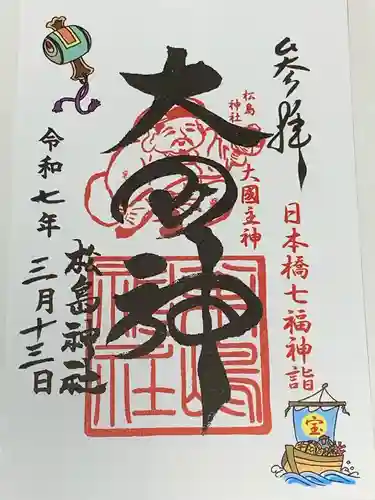 奉拝
日本橋七福神詣
松島神社
大國主神
大国神
松島神社
令和七年三月十三日
松島神社
宝